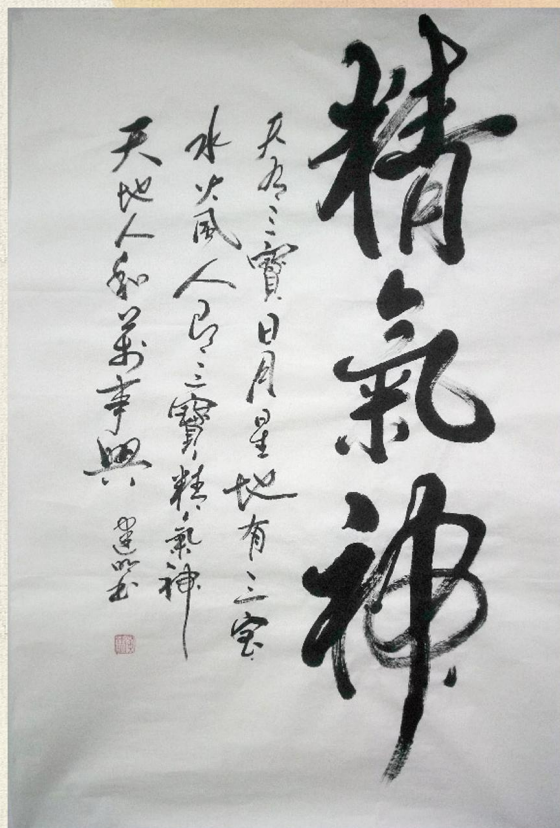 精氣神
天有三寶日月星地有三宝
水火風人即三寶精氣神
天地人和萬事興
書